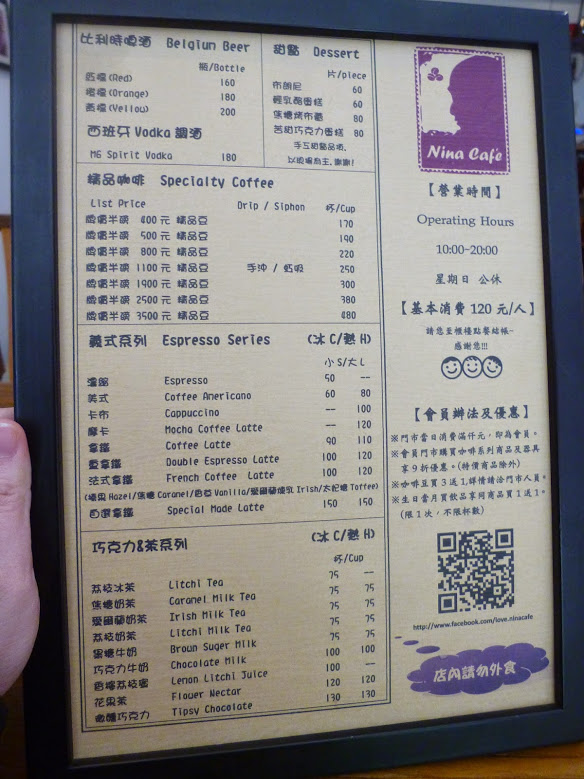 比利時啤酒 Belgiun Beer
瓶/Bottle
(Red) 160
橙檔(Orange) 180
黃檔(Yellow) 200
西班牙Vodka調酒
M6 Spirit Vodka 180
甜點 Dessert
片/piece
布朗尼 60
輕乳酪蛋糕 60
焦糖烤布蕾 80
苦甜巧克力蛋糕 80
手工甜點品項,
以現場為主,謝謝!
精品咖啡 Specialty Coffee
List Price Drip / Siphon 杯/Cup
牌價半磅 400元 精品豆 170
牌價半磅 500元 精品豆 190
牌價半磅 800元 精品豆 220
牌價半磅 1100元 精品豆 手沖 / 虹吸 250
牌價半磅 1900元 精品豆 300
牌價半磅 2500元 精品豆 380
牌價半磅 3500元 精品豆 480
義式系列 Espresso Series (冰C/熱H)
小S/大L
濃縮 Espresso 50 --
美式 Coffee Americano 60 80
卡布 Cappuccino -- 100
摩卡 Mocha Coffee Latte -- 120
拿鐵 Coffee Latte 90 110
雙拿鐵 Double Espresso Latte 100 120
法式拿鐵 French Coffee Latte 100 120
(榛果Hazel/焦糖Caramel/香草Vanilla/愛爾蘭煉乳Irish/太妃糖Toffee)
自選拿鐵 Special Made Latte 150 150
巧克力&茶系列 (冰C/熱H)
杯/Cup
荔枝冰茶 Litchi Tea 75 --
焦糖奶茶 Caramel Milk Tea 75 75
愛爾蘭奶茶 Irish Milk Tea 75 75
荔枝奶茶 Litchi Milk Tea 75 75
黑糖牛奶 Broun Suger Milk 75 75
巧克力牛奶 Chocolate Milk 100 100
香檸荔枝蜜 Lenon Litchi Juice 100 --
花果茶 Flower Nectar 120 120
微醺巧克力 Tipsy Chocolate 130 130
Nina Cafe
【營業時間】
Operating Hours
10:00-20:00
星期日 公休
【基本消費 120 元/人】
請您至櫃檯點餐結帳~
感謝您!!!
【會員辦法及優惠】
※門市當日消費滿仟元，即為會員。
※會員門市購買咖啡系列商品及器具
享9折優惠。(特價商品除外)
※咖啡豆買3送1,詳情請洽門市人員。
※生日當月買飲品享同商品買1送1。
(限1次，不限杯數)
http://www.facebook.com/love.ninacafe
店內請勿外食